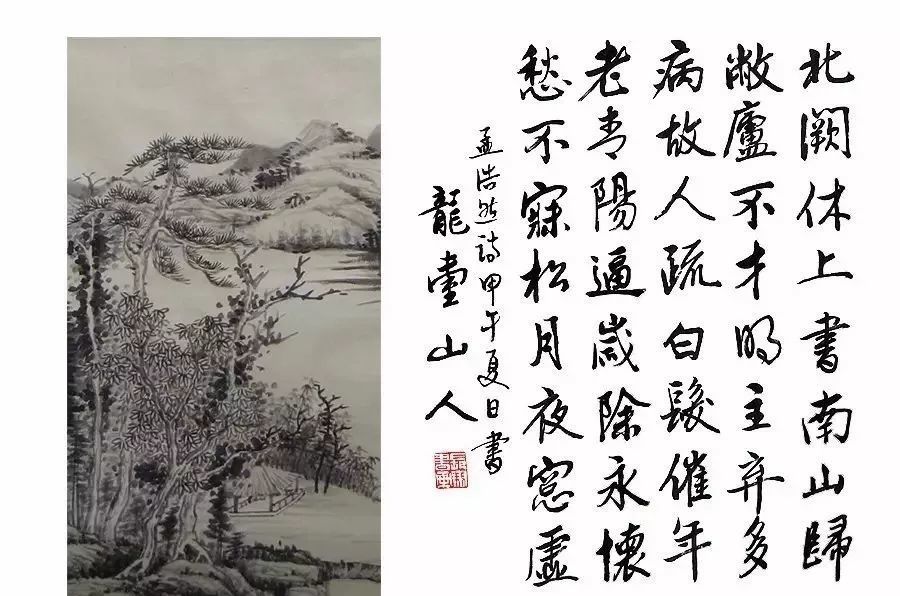 北闕休上書南山歸
敝廬不才明主弃多
病故人疏白髮催年
老青陽逼歲除永懷
愁不寐松月夜窓虛
孟浩然詩甲午夏日書
龍山人